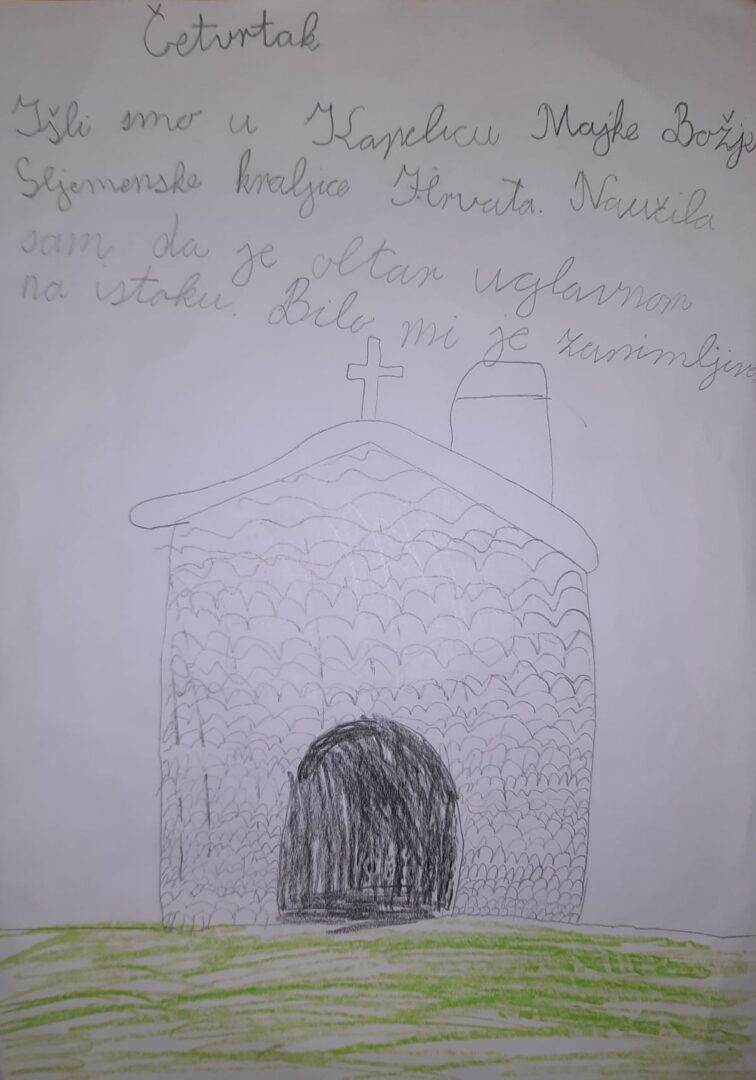 Četvrtak
Išli smo u Kapelicu Majke Božje
Sljemenske kraljice Hrvata. Naučila
sam da je oltar uglavnom
na istoku. Bilo mi je zanimljivo